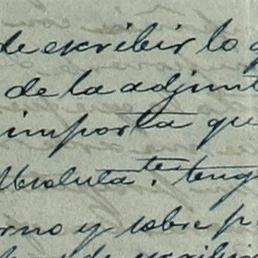 de escribir lo
de la adjunt
importa que
Absoluta.te teng
rno y sobre p